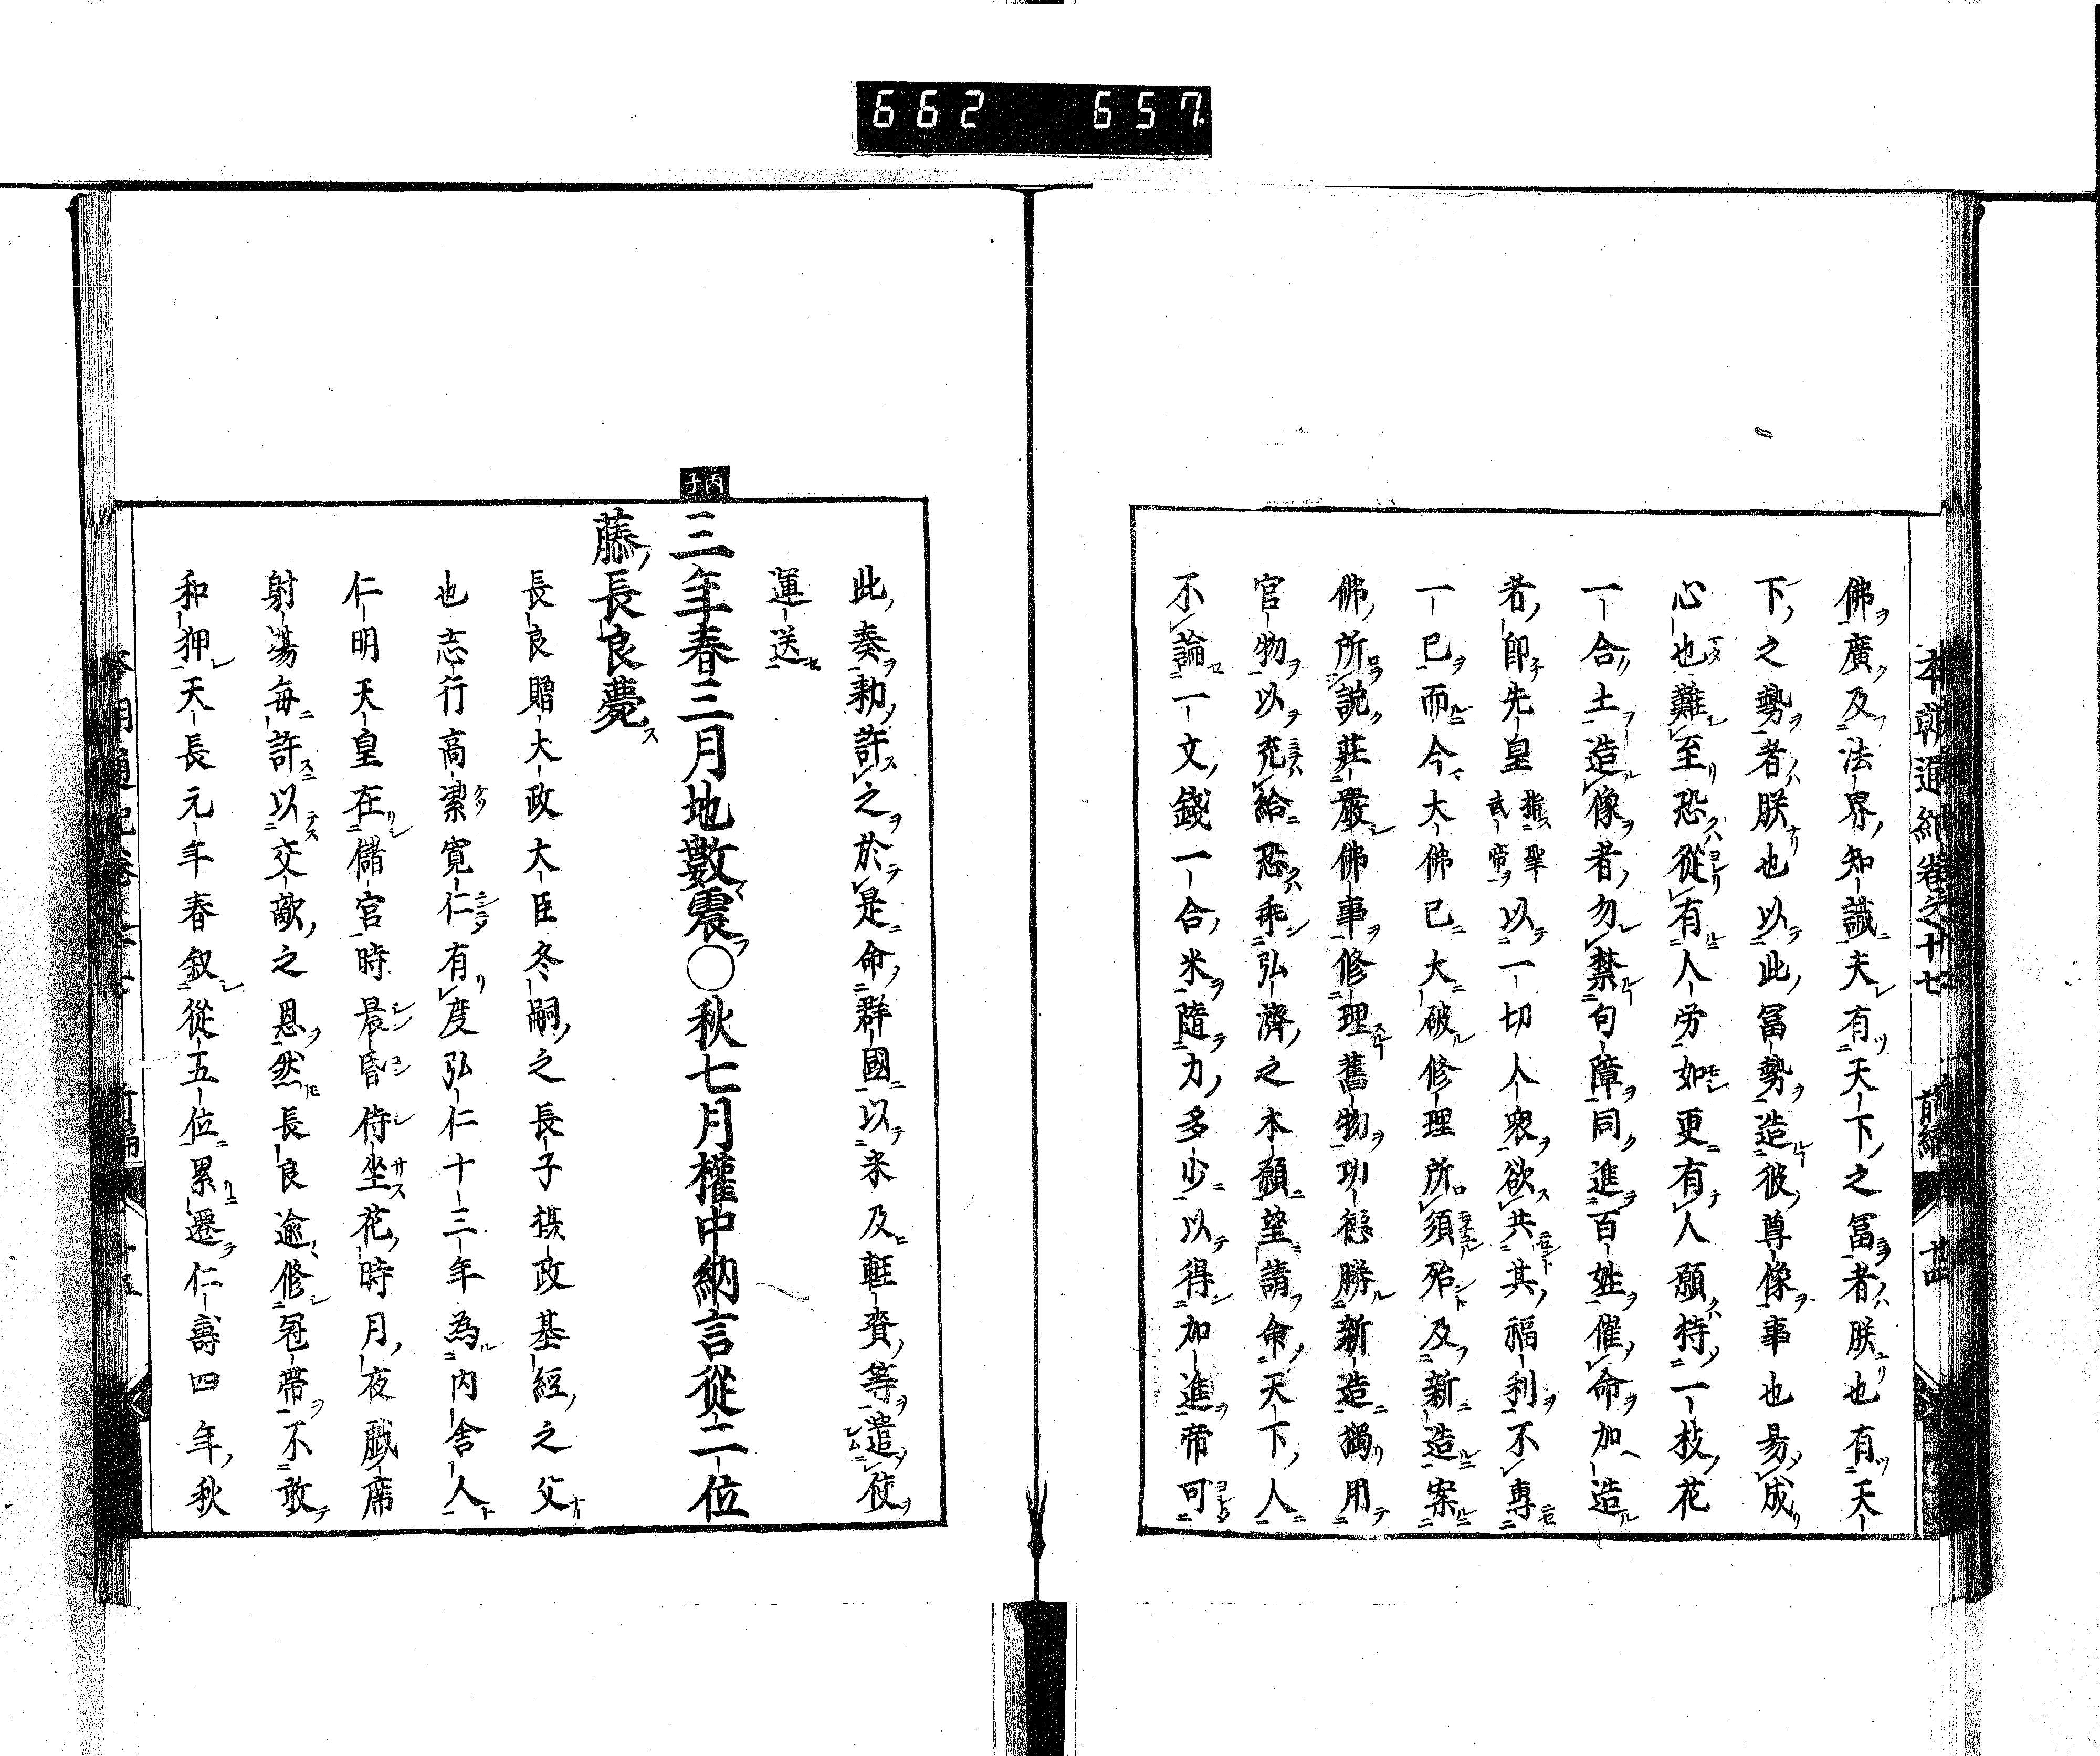 662 657
本朝通紀卷之十七 前編 廿四
佛廣及法界知識夫有天下之冨者朕也有天
下之勢者朕也以此冨勢造彼尊像事也易成
心也難至恐從有人労如更有人願持一枝花
一合土造像者勿禁句障同進百姓催命加造
者即先皇指聖武帝以一切人衆欲共其福利不專
一已而今大佛已大破修理所須殆及新造案
佛所説莊嚴佛事修理舊物功德勝新造獨用
官物以充給恐乖弘濟之本願望請命天下人
不論一文錢一合米隨力多少以得加進帝可
此奏勅許之於是命群國以米及輕賚等遣使
運送
丙子
三年春三月地數震○秋七月權中納言從二位
藤長良薨
長良贈大政大臣冬嗣之長子摂政基經之父
也志行高潔寛仁有度弘仁十三年為内舎人
仁明天皇在儲宮時晨昏侍坐花時月夜戯席
射場毎許以交敵之恩然長良逾修冠帶不敢
和狎天長元年春叙從五位累遷仁壽四年秋